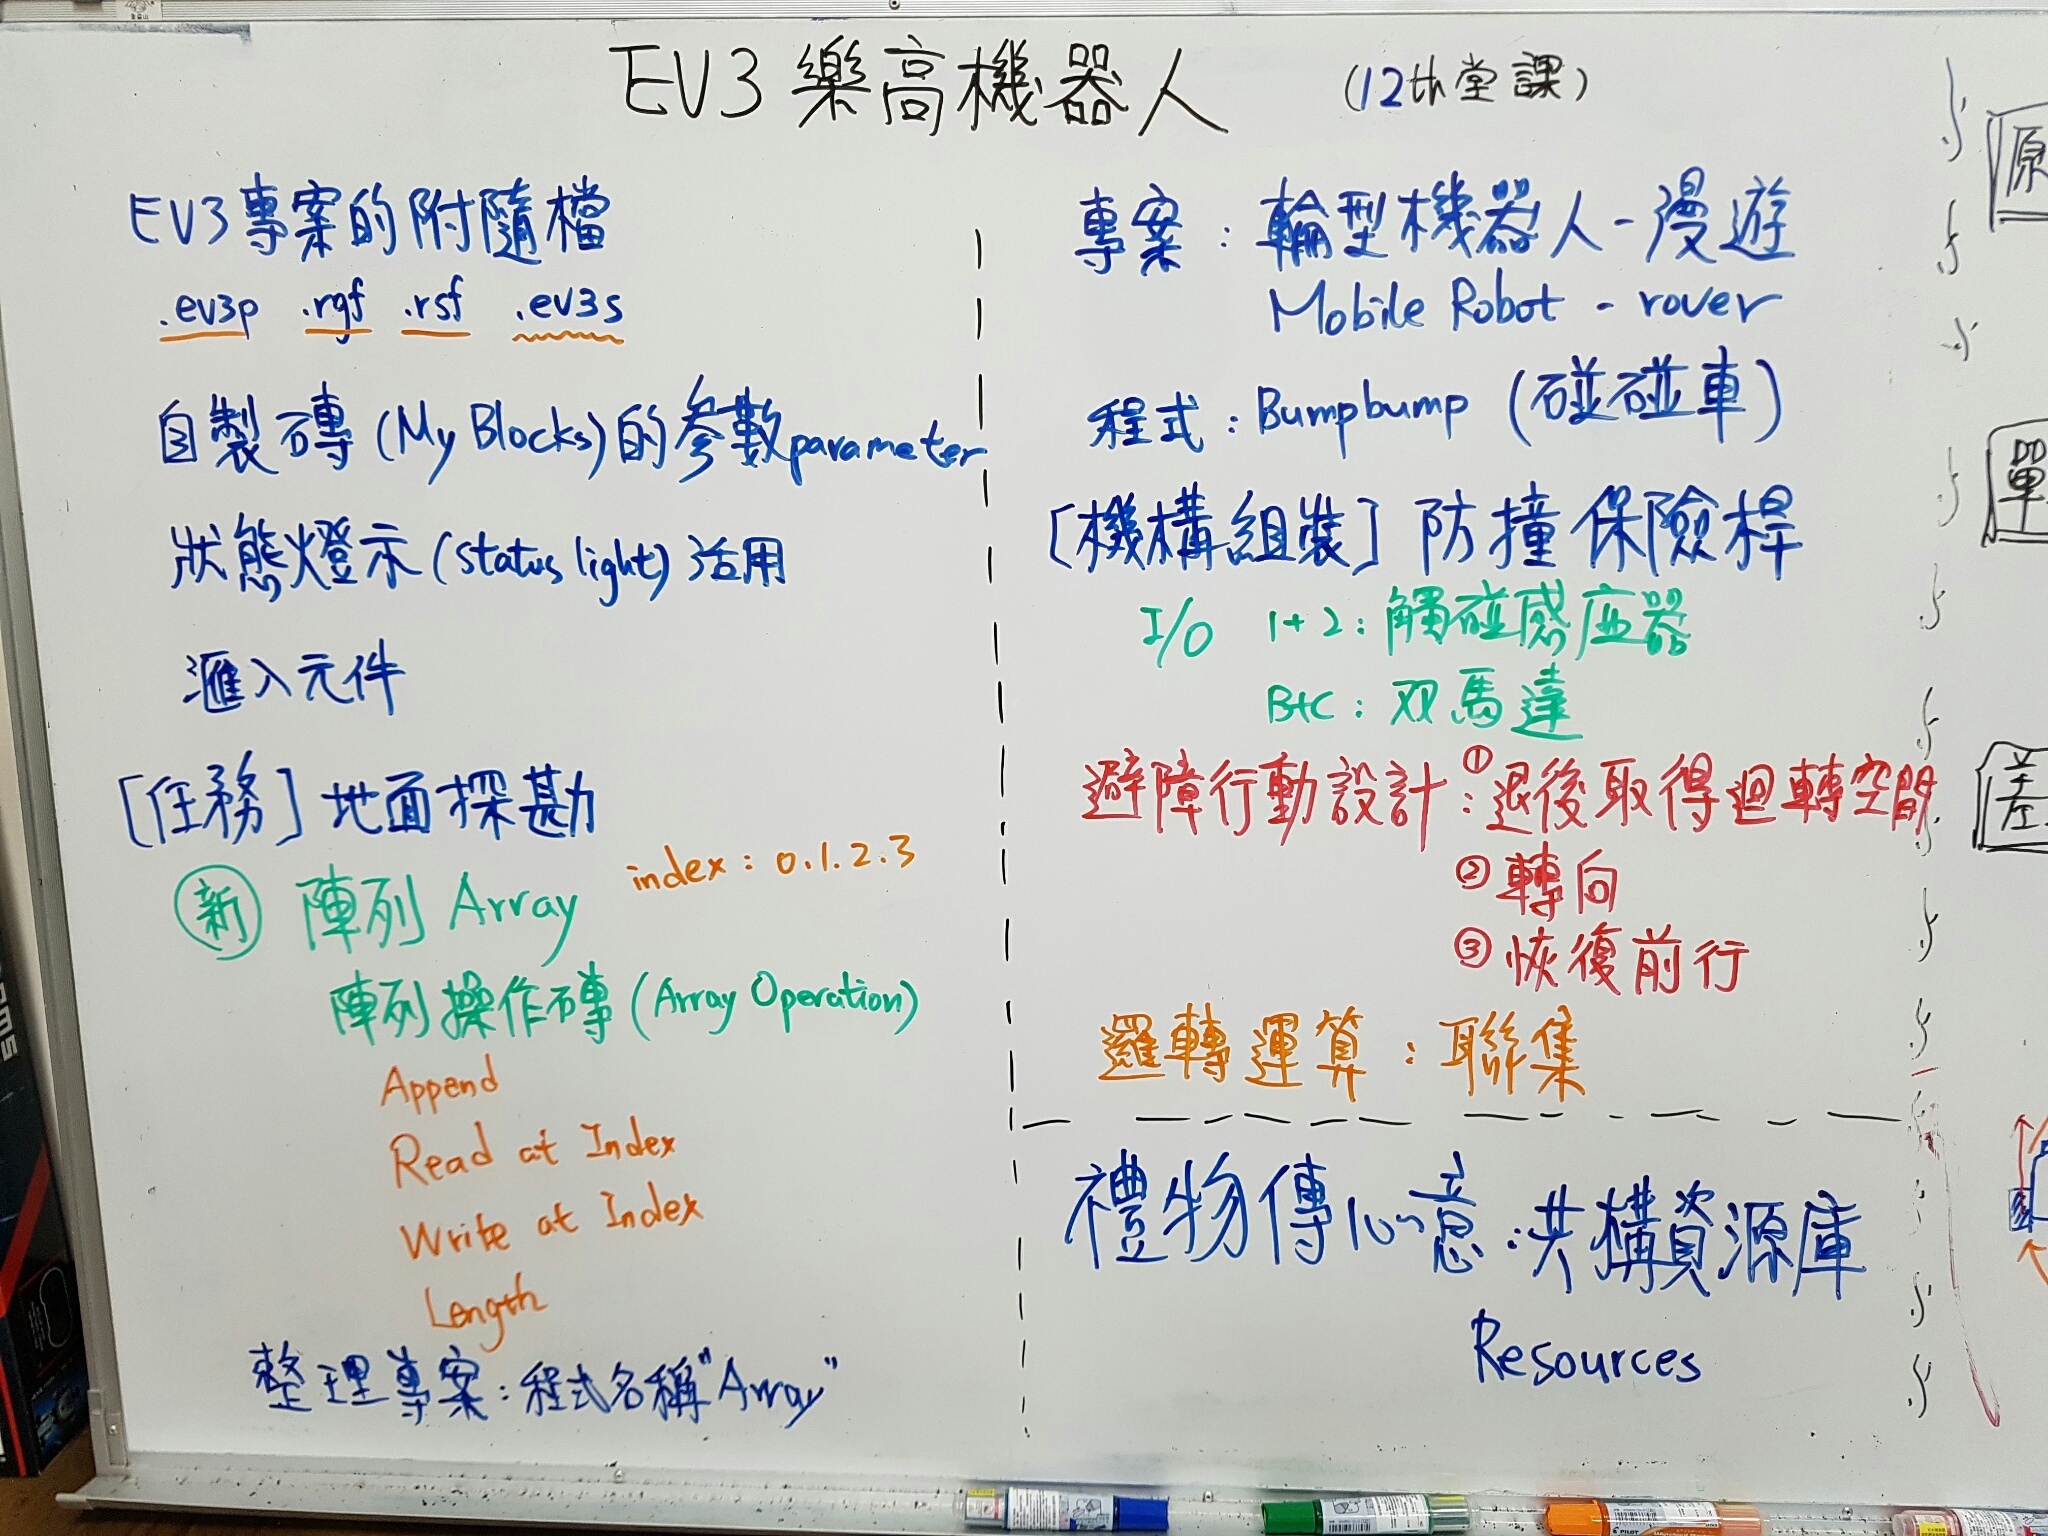 EV3 樂高機器人 (12th堂課)
EV3專案的附隨檔
.ev3p .rgf .rsf .ev3s
自製磚(My Blocks)的參數parameter
狀態燈示(status light)活用
滙入元件
[任務]地面探勘
新 陣列 Array index:0.1.2.3
陣列操作磚(Array Operation)
Append
Read at Index
Write at Index
Length
整理專案:程式名稱"Array"
專案:輪型機器人-漫遊
Mobile Robot - rover
程式:Bumpbump (碰碰車)
[機構組裝]防撞保險桿
I/O 1+2:觸碰感应器
B+C:双馬達
避障行動設計:①退後取得迴轉空間
②轉向
③恢復前行
邏轉運算:聯集
禮物傳心意:共構資源庫
Resources
原
單
差